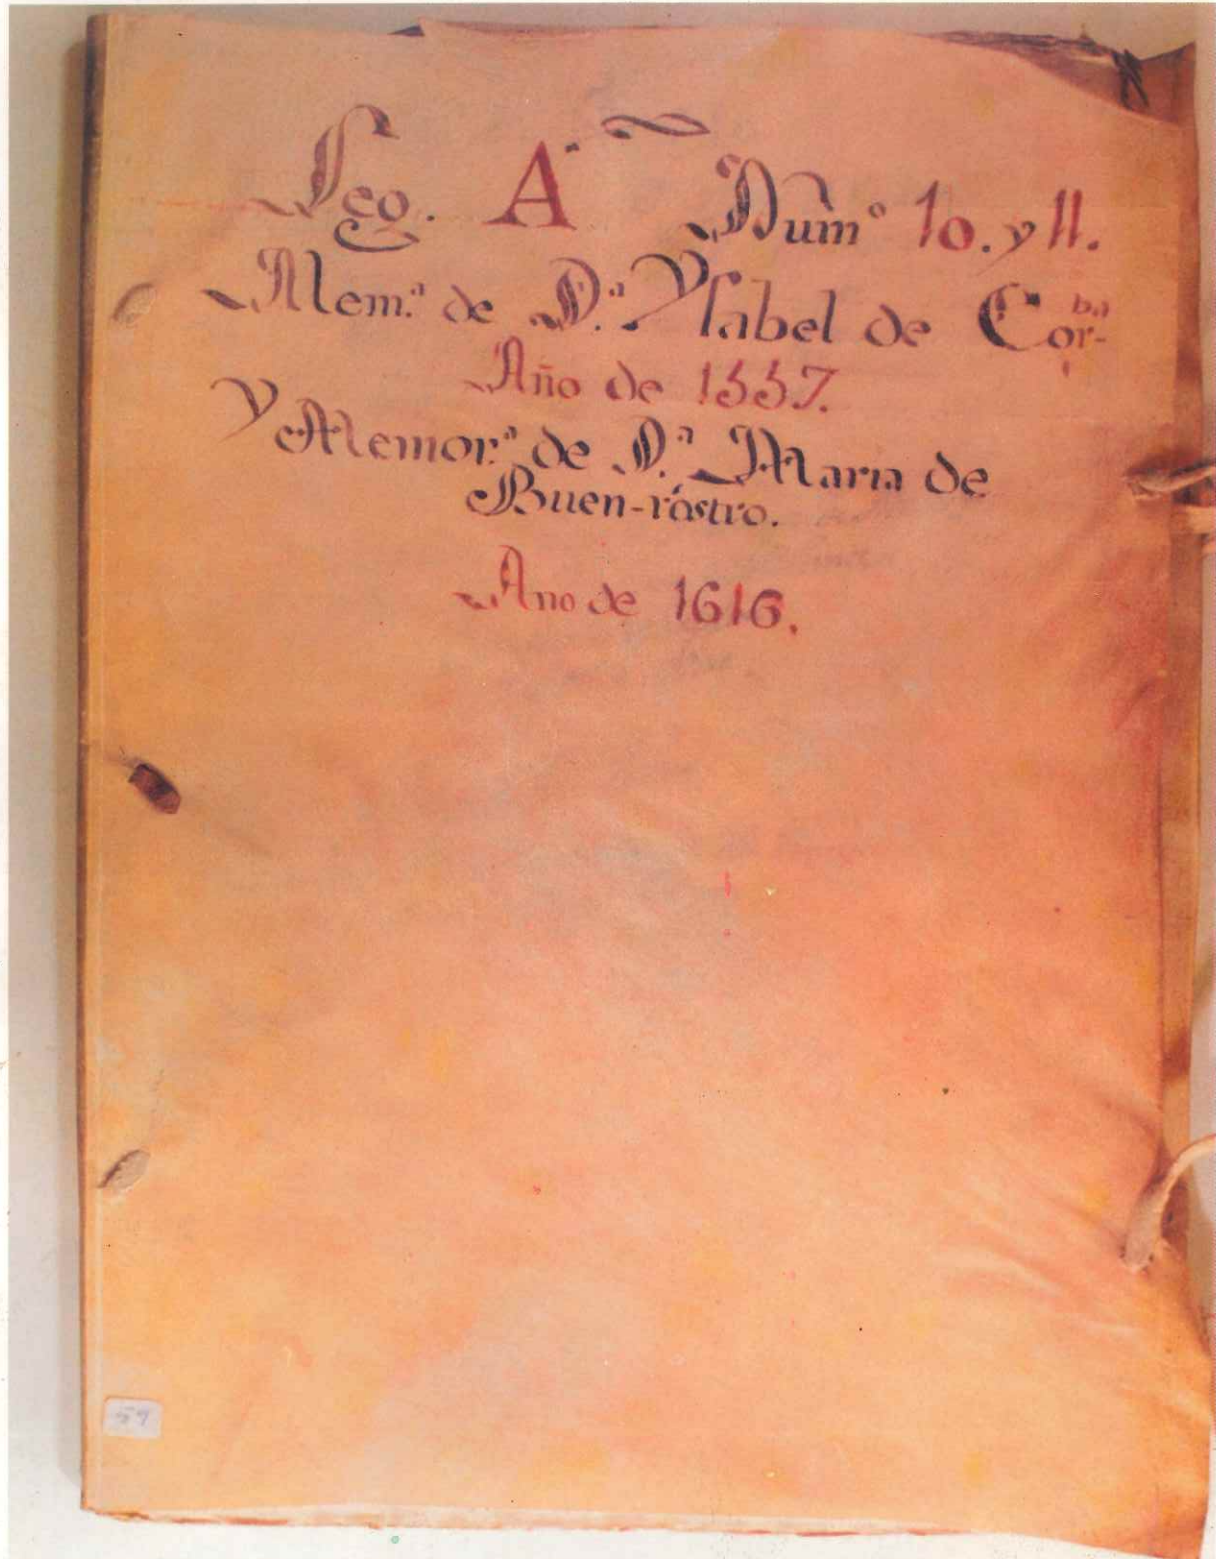 Leg. A. Num° 10. y 11.
Mem.ª de D.ª Ysabel de Cor-ba
Año de 1557.
Y Memor.ª de D.ª Maria de
Buen-rostro.
Ano de 1616.